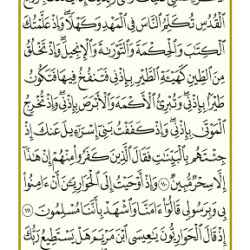 ٱلْقُدُسِ تُكَلِّمُ ٱلنَّاسَ فِى ٱلْمَهْدِ وَكَهْلًا وَإِذْ عَلَّمْتُكَ
ٱلْكِتَٰبَ وَٱلْحِكْمَةَ وَٱلتَّوْرَىٰةَ وَٱلْإِنجِيلَ وَإِذْ تَخْلُقُ
مِنَ ٱلطِّينِ كَهَيْـَٔةِ ٱلطَّيْرِ بِإِذْنِى فَتَنفُخُ فِيهَا فَتَكُونُ
طَيْرًۢا بِإِذْنِى وَتُبْرِئُ ٱلْأَكْمَهَ وَٱلْأَبْرَصَ بِإِذْنِى وَإِذْ تُخْرِجُ
ٱلْمَوْتَىٰ بِإِذْنِى وَإِذْ كَفَفْتُ بَنِىٓ إِسْرَٰٓءِيلَ عَنكَ إِذْ
جِئْتَهُم بِٱلْبَيِّنَٰتِ فَقَالَ ٱلَّذِينَ كَفَرُوا۟ مِنْهُمْ إِنْ هَٰذَآ
إِلَّا سِحْرٌ مُّبِينٌ ١١٠ وَإِذْ أَوْحَيْتُ إِلَى ٱلْحَوَارِيِّـۧنَ أَنْ ءَامِنُوا۟
بِى وَبِرَسُولِى قَالُوٓا۟ ءَامَنَّا وَٱشْهَدْ بِأَنَّنَا مُسْلِمُونَ ١١١
إِذْ قَالَ ٱلْحَوَارِيُّونَ يَٰعِيسَى ٱبْنَ مَرْيَمَ هَلْ يَسْتَطِيعُ رَبُّكَ